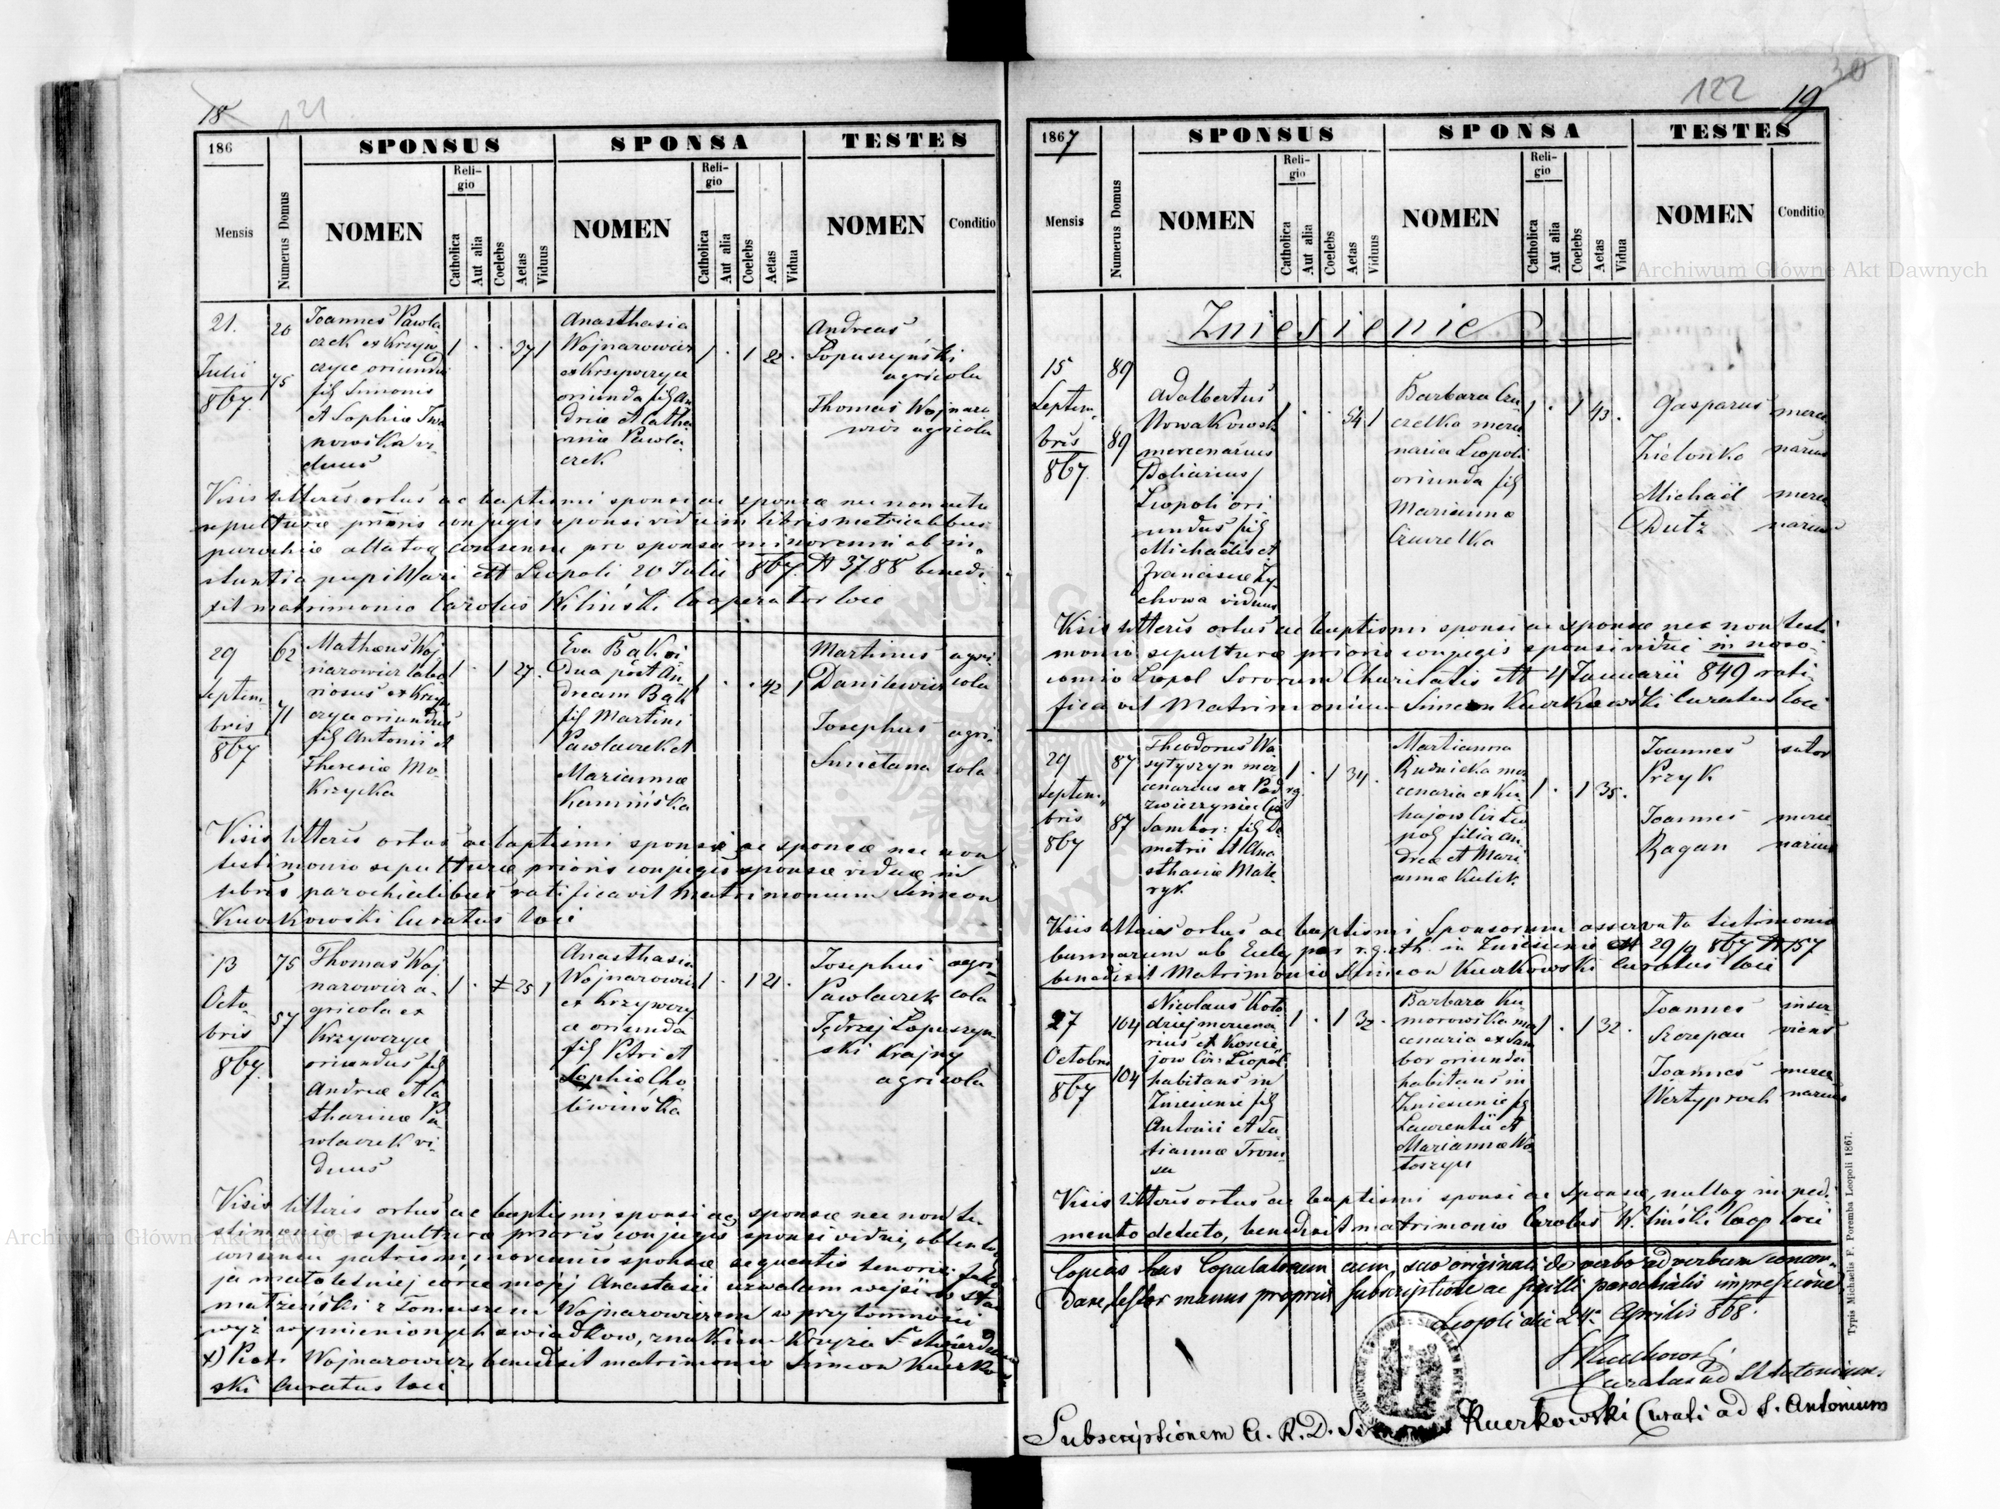 18
121
186
SPONSUS
SPONSA
TESTES
Mensis
Numerus Domus
NOMEN
Religio
Catholica
Aut alia
Coelebs
Aetas
Viduus
NOMEN
Religio
Catholica
Aut alia
Coelebs
Aetas
Vidua
NOMEN
Conditio
21.
Julii
867
20
75
Joannes Pawla
czek ex Krzyw
czyce oriundus
fil Simonis
et Sophiae Iwa
nowska vi
duus
1 . . 37 1
Anasthasia
Wojnarowicz
ex Krzywczyce
oriunda fil An
dreae et Catha
rinae Pawla
czek
1 . 1 22 .
Andreas
Łopuszyński
agricola
Thomas Wojnaro
wicz agricola
Visis litteris ortus ac baptismi sponsi ac sponsae nec non actu
sepulturae prioris conjugis sponsi vidui in libris metricalibus
parochiae allatoq consensu pro sponsa minorenni ab in-
stantia pupillari ddt Leopoli 20 Julii 867 N 3788 benedi
xit matrimonio Carolus Wiliński Cooperator loci
29
Septem
bris
867
62
71
Mathaeus Woj
narowicz labo
riosus ex Krzyw
czyce oriundus
fil Antonii et
Theresiae Mo
krzycka
1 . 1 27 .
Eva Bąk vi
dua post An
dream Bąk
fil Martini
Pawlaczek et
Mariannae
Kamińska
1 . . 42 1
Martinus agri
Danilewicz cola
Josephus agri
Smietana cola
Visis litteris ortus ac baptismi sponsi ac sponsae nec non
testimonio sepulturae prioris conjugis sponsae viduae in
libris parochialibus ratificavit matrimonium Simeon
Kuczkowski Curatus loci
13
Octo
bris
867
75
57
Thomas Woj
narowicz a-
gricola ex
Krzywczyce
oriundus fil
Andreae et Ca
tharinae Pa
wlaczek vi-
duus
1 . 25 1
Anasthasia
Wojnarowicz
ex Krzywczy
ce oriunda
fil Petri et
Sophiae Cho
lewińska
1 . 1 21 .
Josephus agri-
Pawlaczek cola
Jędrzej Łopuszyń
ski Krajny
agricola
Visis litteris ortus ac baptismi sponsi ac sponsae nec non te-
stimonio sepulturae prioris conjugis sponsi vidui, obtento
consensu patris minorennis sponsae sequentis tenoris: Jako
ja małoletniej córce mojej Anastasii zezwalam wejść w stan
małżeński z Tomaszem Wojnarowiczem w przytomności
wyż wymienionych świadków, znakiem krzyża S. stwierdzam
x) Piotr Wojnarowicz, benedixit matrimonio Simeon Kuczkow
ski Curatus loci
30
122
19
1867
SPONSUS
SPONSA
TESTES
Mensis
Numerus Domus
NOMEN
Religio
Catholica
Aut alia
Coelebs
Aetas
Viduus
NOMEN
Religio
Catholica
Aut alia
Coelebs
Aetas
Vidua
NOMEN
Conditio
Zniesienie
15
Septem-
bris
867
89
89
Adalbertus
Nowakowski
mercenarius
Doliarius/
Leopoli ori
undus fil
Michaelis et
Franciscae Ży
chowa viduus
1 . . 54 1
Barbara Czu
czelka merce
naria Leopoli
oriunda fil
Mariannae
Czuczelka
1 . 1 43 .
Gasparus merce
Zielonko narius
Michaël merce
Dutz narius
Visis litteris ortus ac baptismi sponsi ac sponsae nec non testi
monio sepulturae prioris conjugis sponsi vidui in noso-
comio Leopol Sororum Charitatis ddt 4 Januarii 849 rati-
ficavit Matrimonium Simeon Kuczkowski Curatus loci
29
Septem-
bris
867
87
87
Theodorus Wa
sytyszyn mer
cenarius ex Pod
zwierzyniec Cir
Sambor: fil De
metrii et Ana
sthasiae Mate
ryk
1 rg. . 1 34 .
Marianna
Rudnicka mer
cenaria ex Ku
hajow Cir Leo
pol filia An
dreae et Mari
annae Kulik
1 . 1 35 .
Joannes sutor
Przyk
Joannes merce
Ragan narius
Visis litteris ortus ac baptismi Sponsorum asservato testimonio
bannorum ab Eccl. par r. g. rth. in Zniesienie ddt 29/9 867 N 157
benedixit Matrimonio Simeon Kuczkowski Curatus loci
27
Octobris
867
104
104
Nicolaus Koło
dziej mercena
rius ex Koscie
jow Cir: Leopol
habitans in
Zniesienie fil
Antonii et Ta
tiannae Trom
sa
1 . 1 32 .
Barbara Ku
morowska mer
cenaria ex Sam
bor oriunda
habitans in
Zniesienie fil
Laurentii et
Mariannae Wo
łoszyn
1 . 1 32 .
Joannes inser
Szczepan viens
Joannes merce
Wertyproch narius
Visis litteris ortus ac baptismi sponsi ac sponsae, nulloq impedi
mento detecto, benedixit matrimonio Carolus Wiliński Coop loci
Copias has Copulatorum cum suo originali de verbo ad verbum concor-
dare testor manus propriae subscriptione ac sigilli parochialis impressione
Leopoli die 24 Aprilis 868.
S Kuczkowski
Curatus ad St Antonium
Subscriptionem A. R. D. Simeonis Kuczkowski Curati ad S. Antonium
Typis Michaelis F. Poremba Leopoli 1867.
Archiwum Główne Akt Dawnych
Archiwum Główne Akt Dawnych